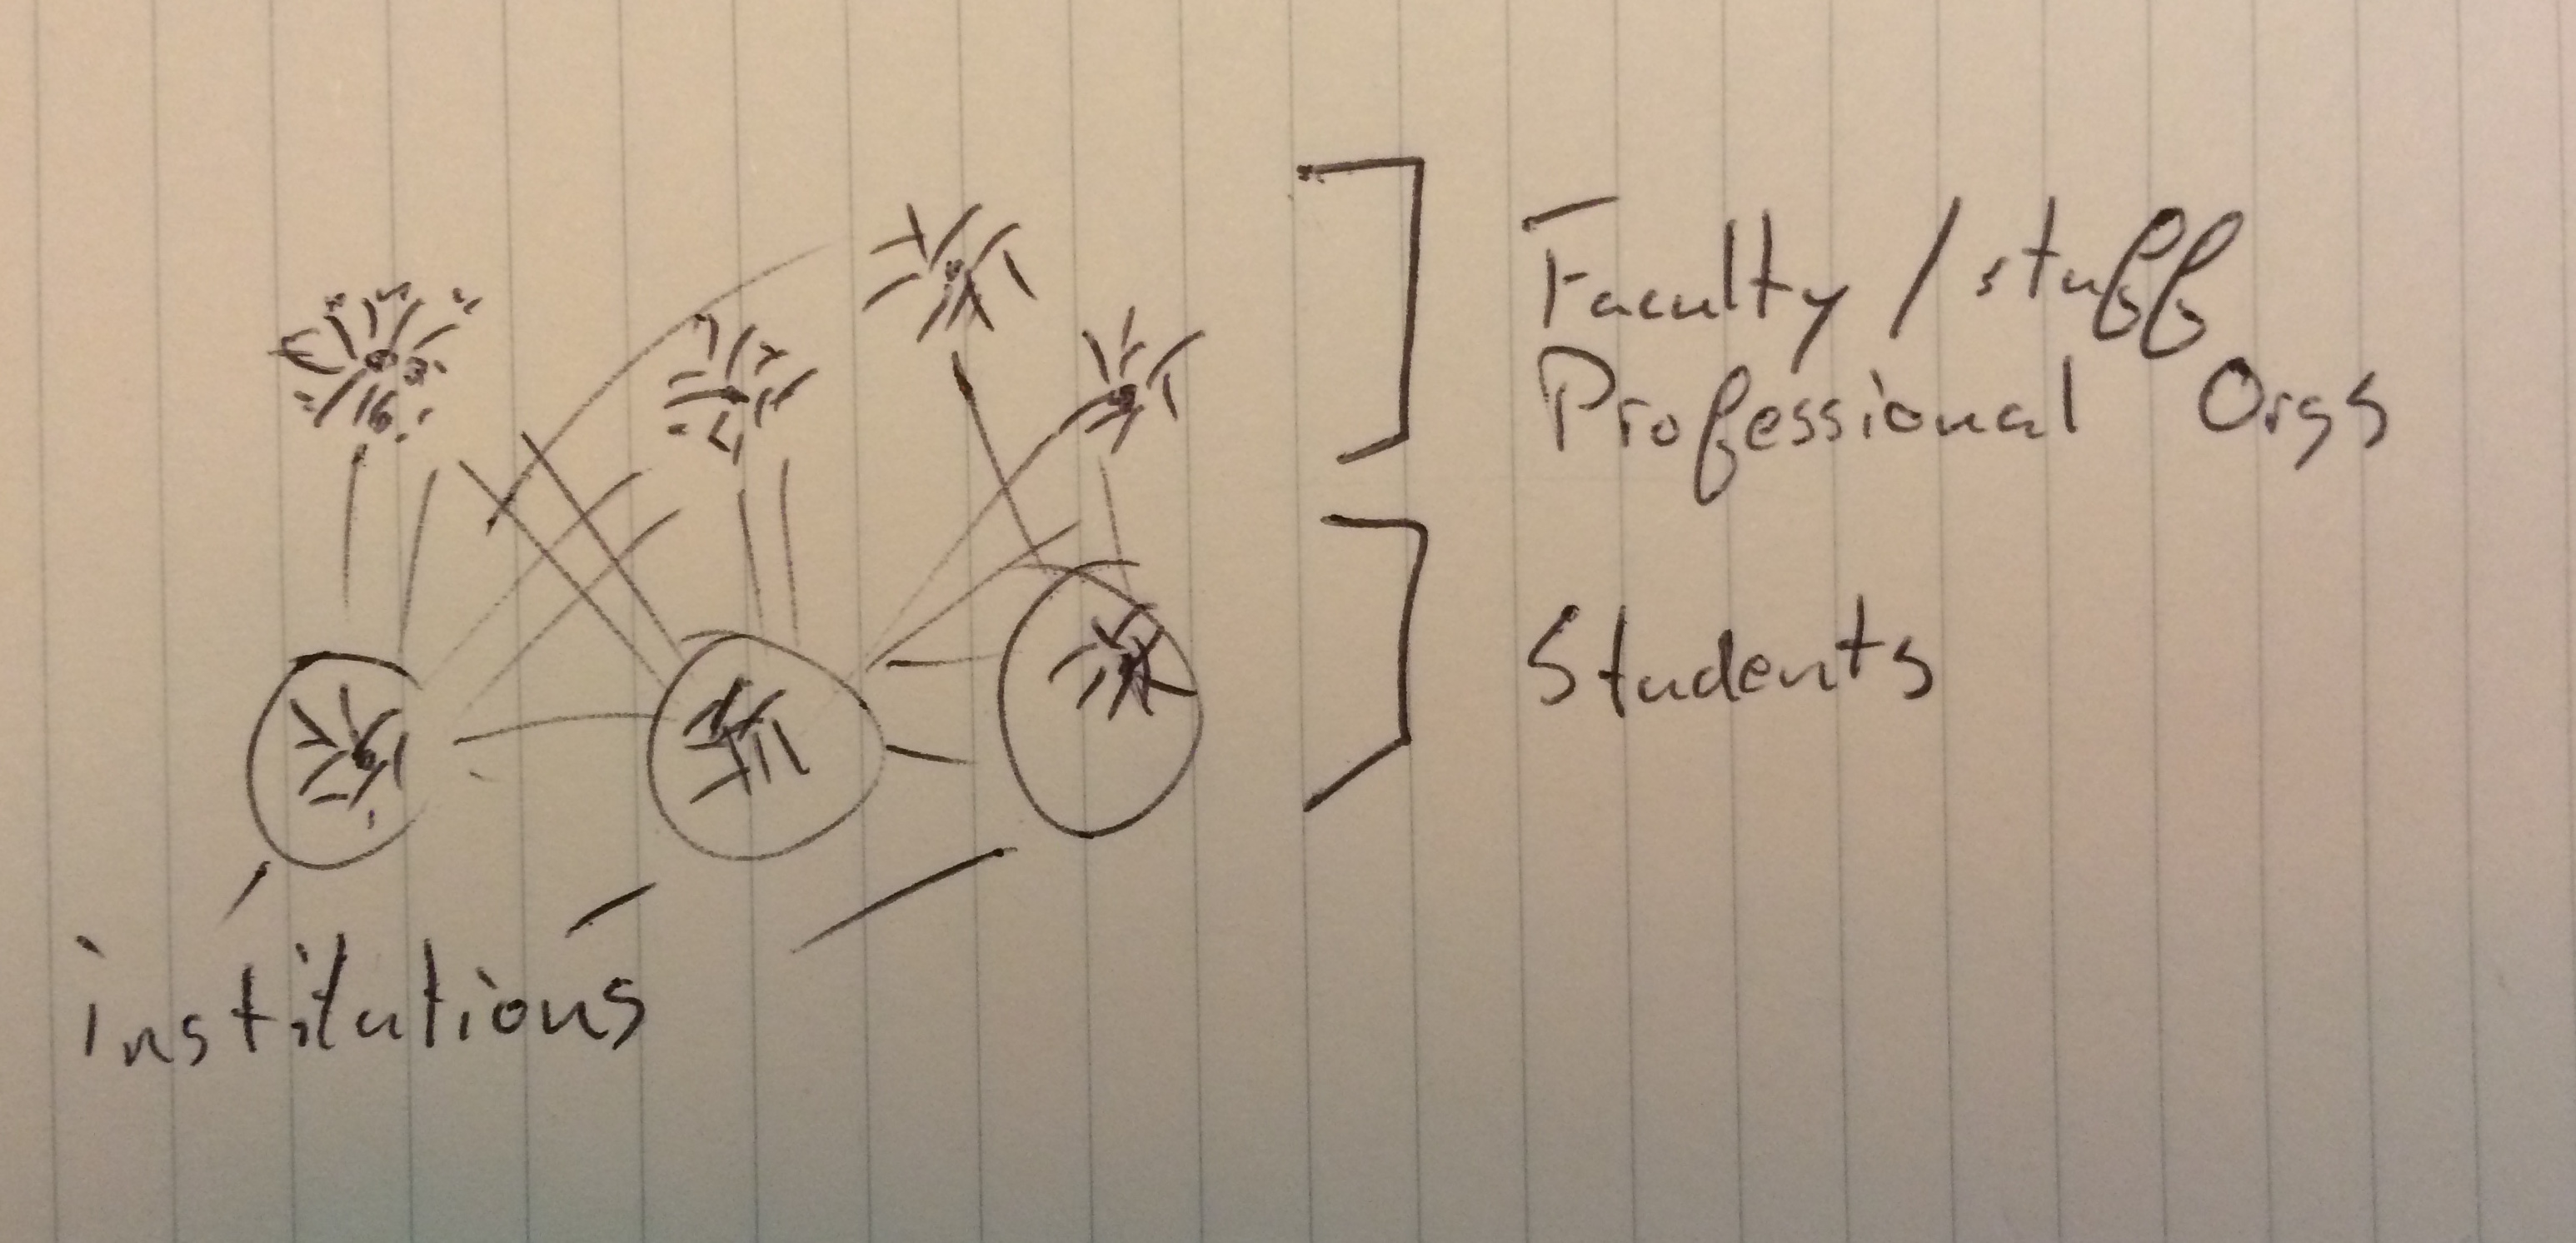 Faculty / stuff
Professional Orgs
Students
institutions